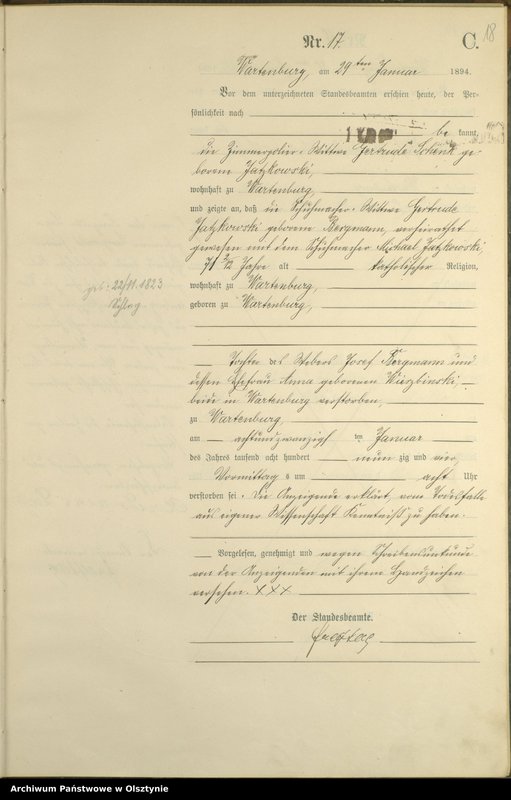 18
Nr. 17. C.
Wartenburg, am 29ten Januar 1894.
Vor dem unterzeichneten Standesbeamten erschien heute, der Per-
sönlichkeit nach
be kannt,
die Zimmerpolier-Wittwe Gertrude Schenk ge-
borene Jatzkowski,
wohnhaft zu Wartenburg,
und zeigte an, daß die Schuhmacher-Wittwe Gertrude
Jatzkowski geborene Bergmann, verheirathet
gewesen mit dem Schuhmacher Michael Jatzkowski,
71 2/12 Jahre alt katholischer Religion,
wohnhaft zu Wartenburg
geboren zu Wartenburg,
geb. 22/11. 1823
Tochter des Webers Josef Bergmann und
dessen Ehefrau Anna geborenen Wieczbinski,
beide in Wartenburg verstorben,
zu Wartenburg,
am achtundzwanzigsten Januar
des Jahres tausend acht hundert neun zig und vier
Vormittags um acht Uhr
verstorben sei. Die Anzeigende erklärt, vom Todesfalle
aus eigener Wissenschaft Kenntniß zu haben.
Vorgelesen, genehmigt und wegen Schreibensunkunde
von der Anzeigenden mit ihrem Handzeichen
versehen. XXX
Der Standesbeamte.
Freytag
Archiwum Państwowe w Olsztynie